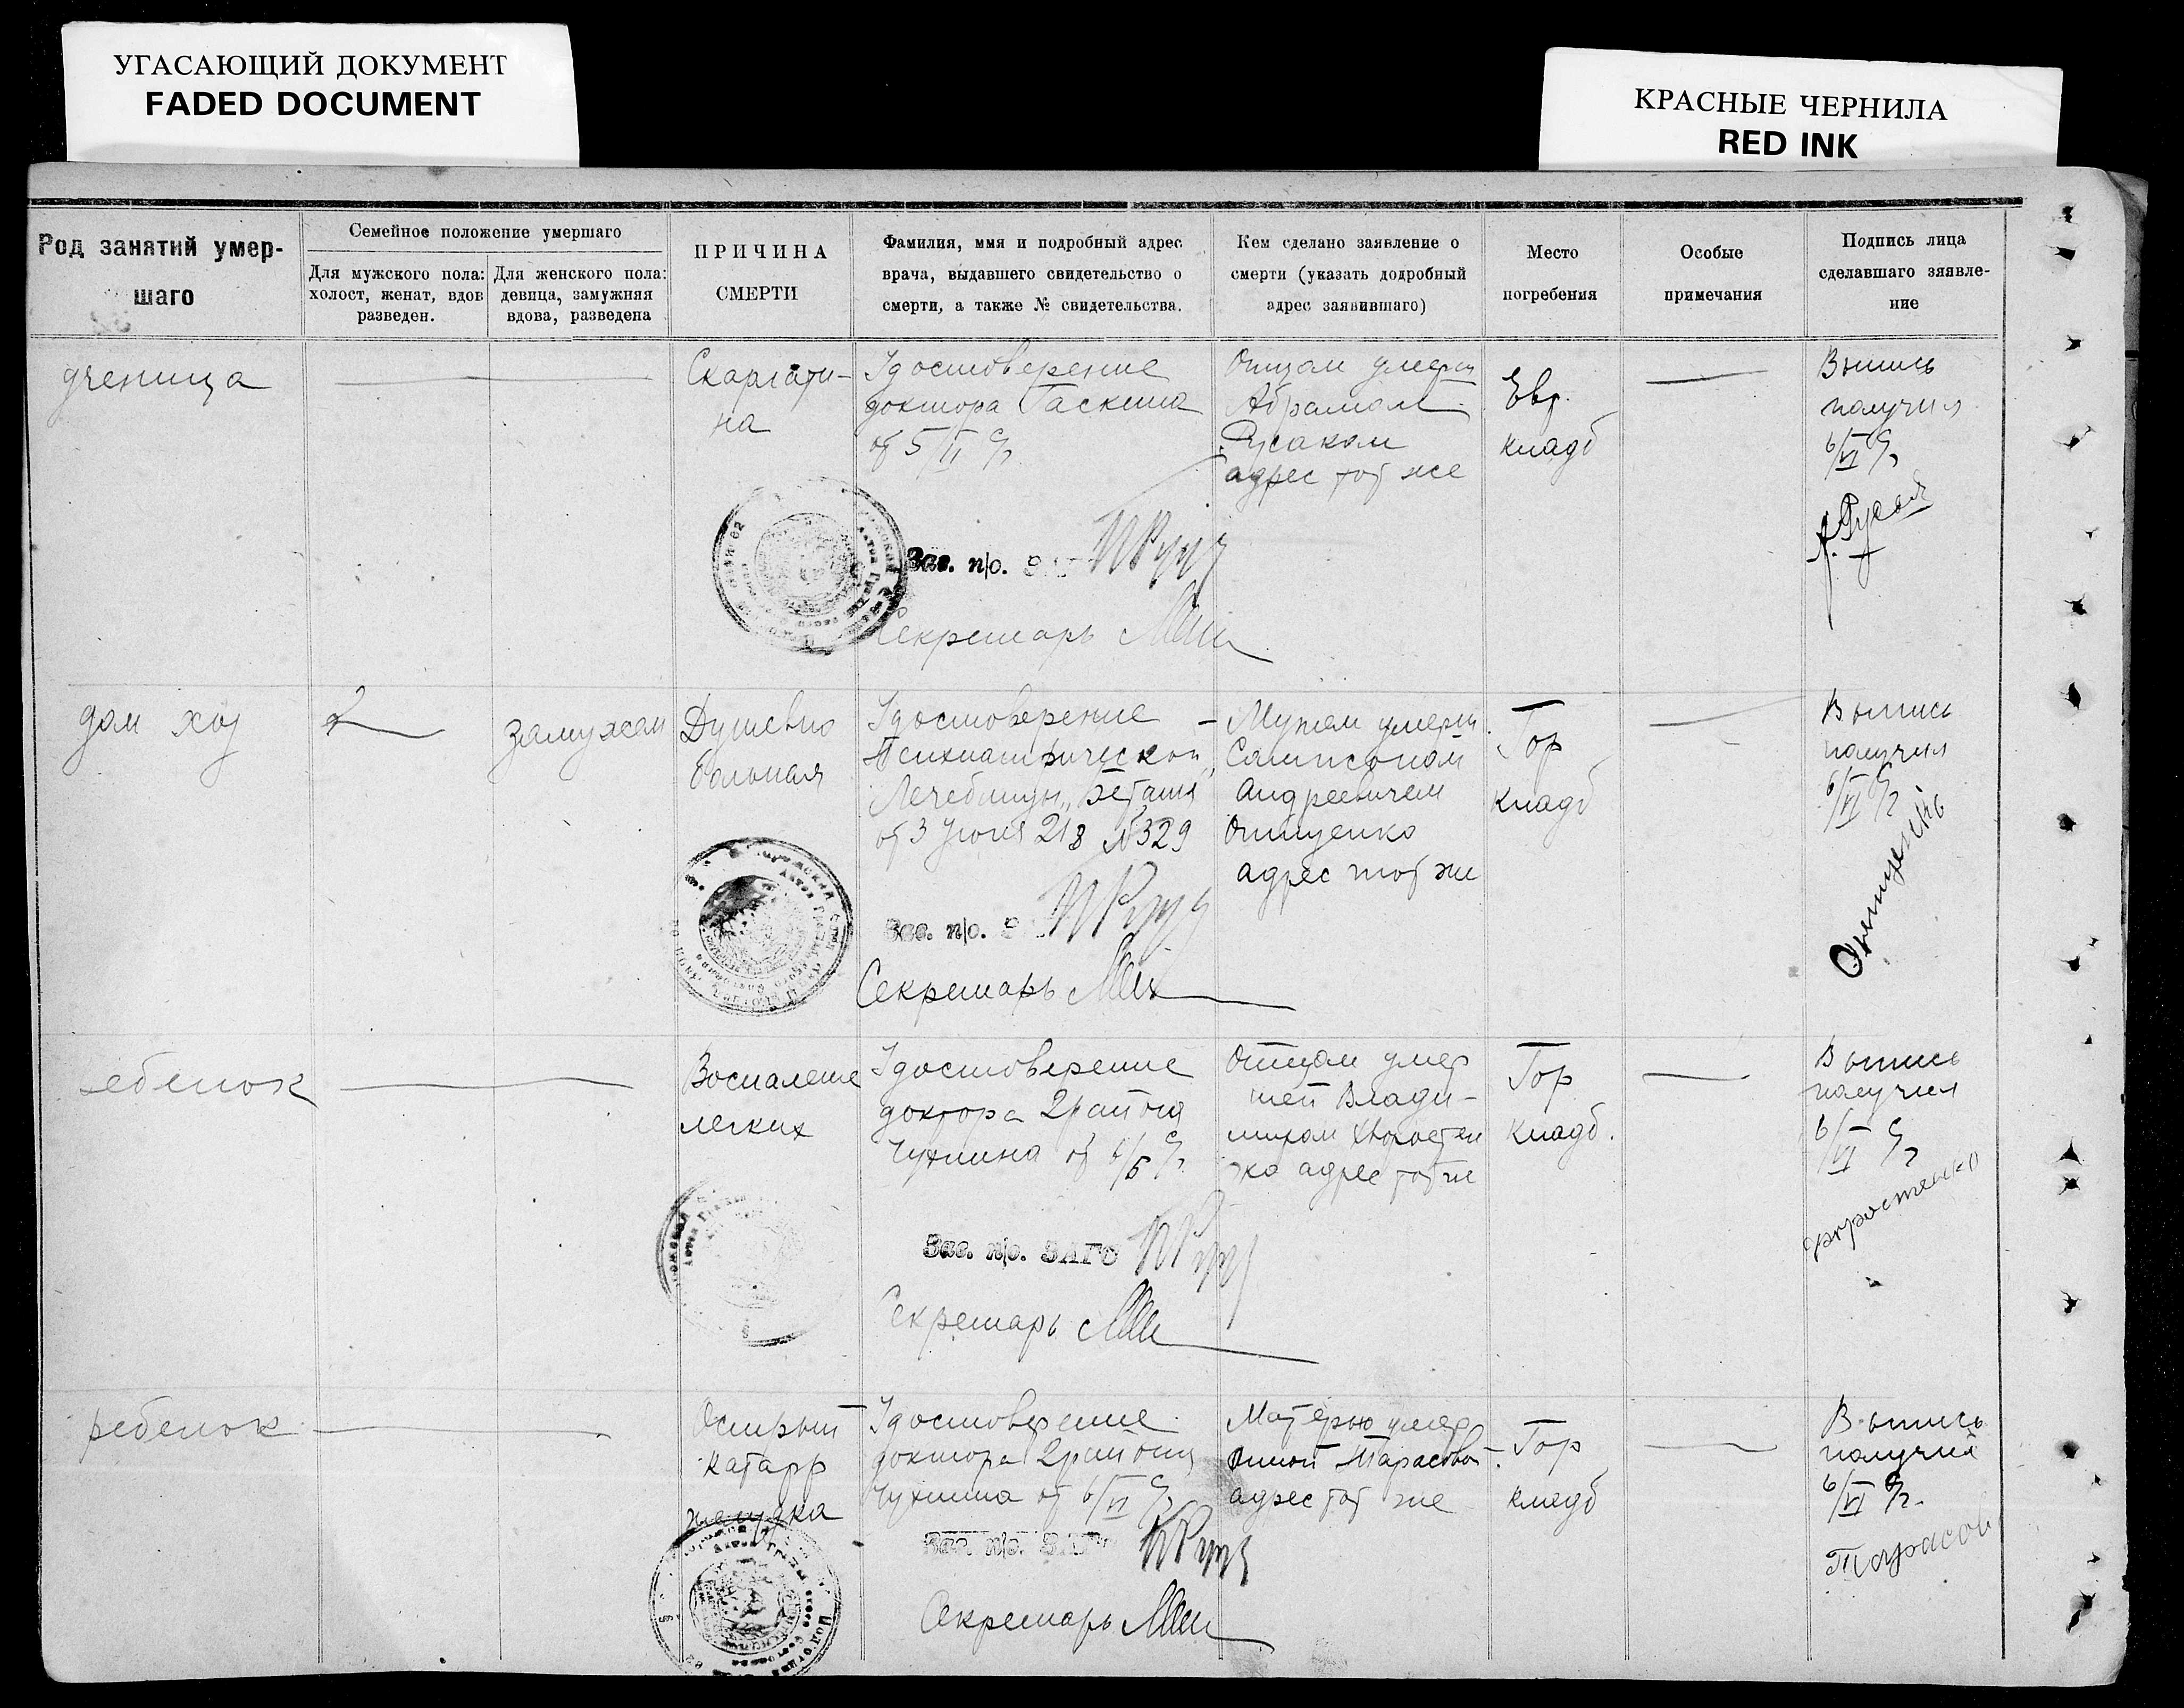 УГАСАЮЩИЙ ДОКУМЕНТ
FADED DOCUMENT
КРАСНЫЕ ЧЕРНИЛА
RED INK
Род занятий умер-
шаго
Семейное положение умершаго
Для мужского пола:
холост, женат, вдов
разведен.
Для женского пола:
девица, замужняя
вдова, разведена
ПРИЧИНА
СМЕРТИ
Фамилия, имя и подробный адрес
врача, выдавшего свидетельство о
смерти, а также № свидетельства.
Кем сделано заявление о
смерти (указать додробный
адрес заявившаго)
Место
погребения
Особые
примечания
Подпись лица
сделавшаго зяявле-
ние
ученица
Скарлати-
на
Удостоверение
доктора Гаскина
от 5/VI с/г
Отцом умерш
Абрамом
Русаком
адрес тот же
Евр.
кладб
Выпись
получил
6/VI с/г
А. Русак
Зав. п/о.
Секретарь
дом хоз
замужем
Душевно
больная
Удостоверение
Психиатрической
Лечебницы
от 3 Июня 213 №329
Мужем умерш.
Сампсоном
Андреевичем
Онищенко
адрес тот же
Гор
кладб
Выпись
получил
6/VI с/г
Онищенко
Зав. п/о.
Секретарь
ебенок
Воспаление
легких
Удостоверение
доктора 2 района
Чухнина от
Отцом умер
шей Влади-
миром Хворостен
ко адрес тот же
Гор
кладб.
Выпись
получил
6/VI с/г
Хворостенко
Зав. п/о. ЗАГС
Секретарь
ребенок
Острый
катарр
желудка
Удостоверение
доктора 2 района
Чухнина от 6/VI с/г
Матерью умер
Анной Тарасовой.
адрес тот же
Гор
кладб
Выпись
получил
6/VI с/г.
Тарасов
Зав. п/о. ЗАГС
Секретарь